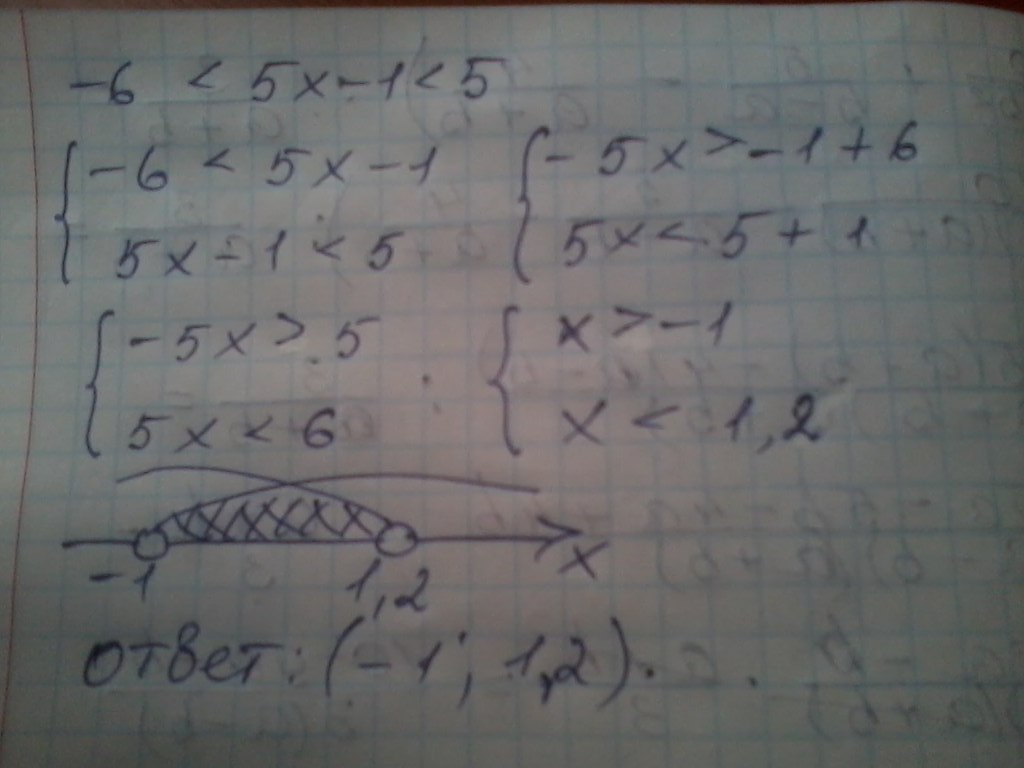 -6 < 5x-1 < 5
{ -6 < 5x-1
5x-1 < 5
{ -5x > -1+6
5x < 5+1
{ -5x > 5
5x < 6
{ x > -1
x < 1,2
-1 1,2 x
ответ: (-1; 1,2).